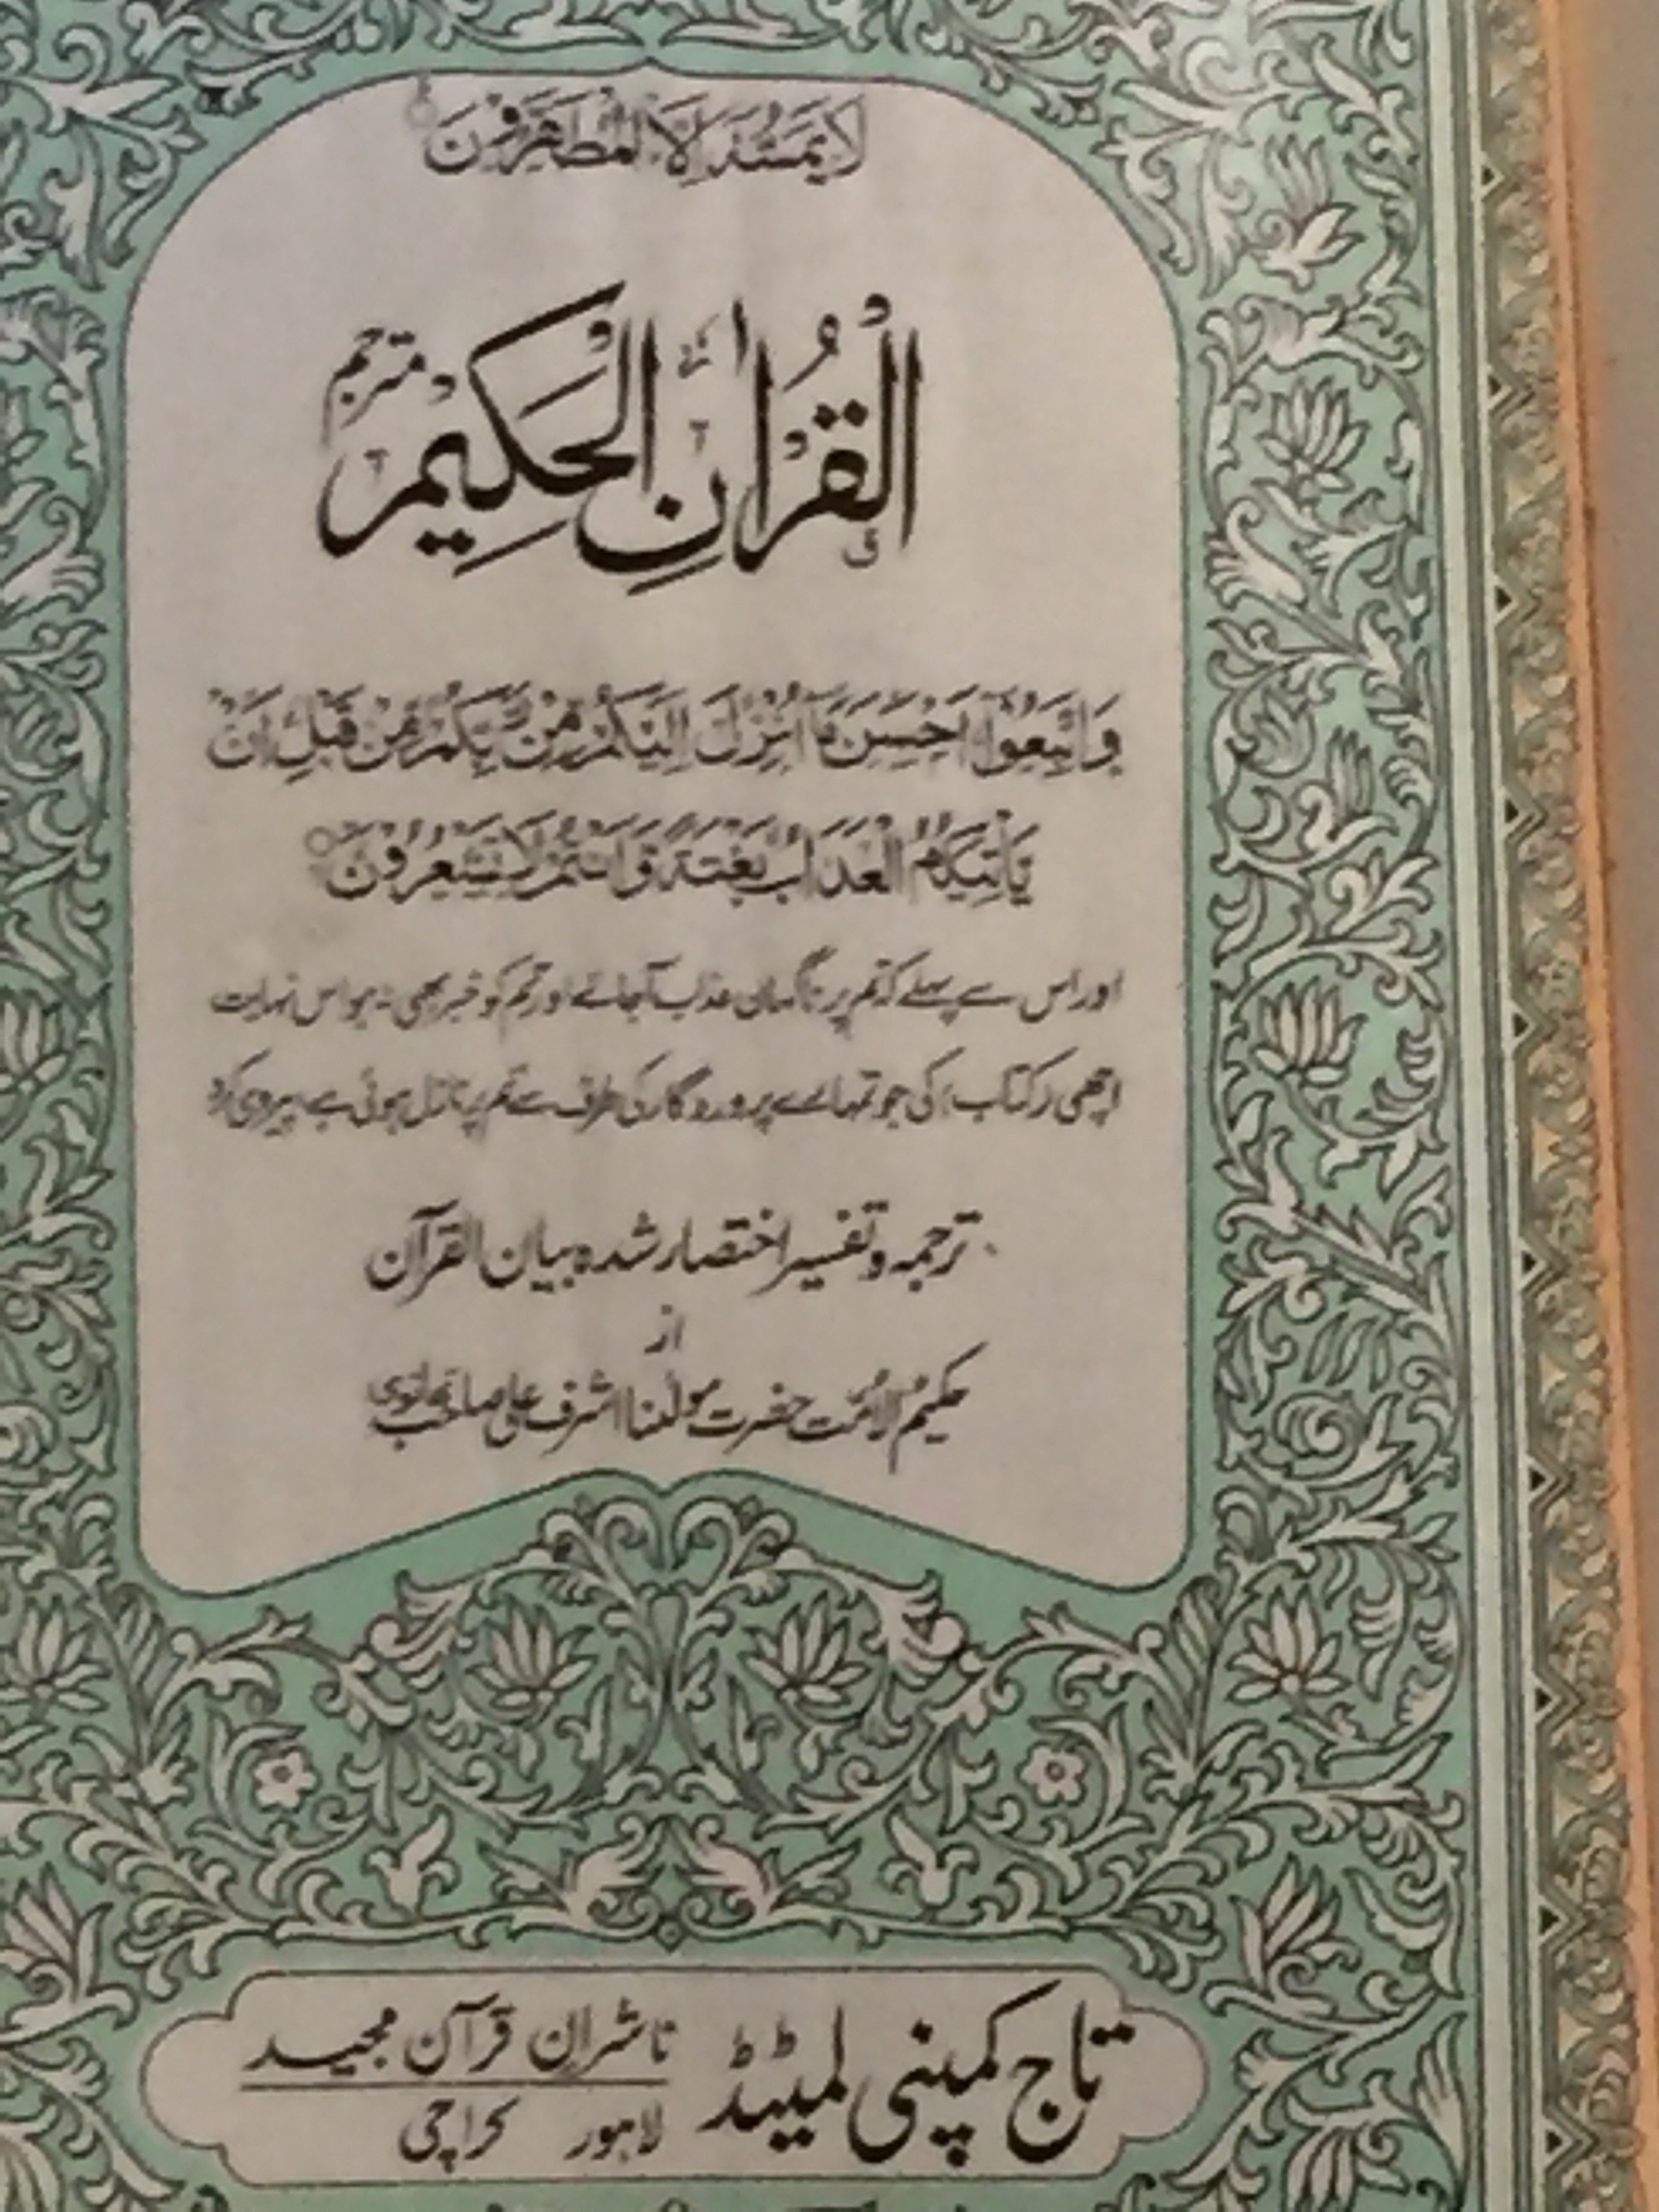 لَا يَمَسُّهٗٓ اِلَّا الْمُطَهَّرُوْنَ
الْقُرْاٰنِ الْحَكِيْمِ مترجم
وَاتَّبِعُوْٓا اَحْسَنَ مَآ اُنْزِلَ اِلَيْكُمْ مِّنْ رَّبِّكُمْ مِّنْ قَبْلِ اَنْ
يَّاْتِيَكُمُ الْعَذَابُ بَغْتَةً وَّاَنْتُمْ لَا تَشْعُرُوْنَ
اور اس سے پہلے کہ تم پر ناگہاں عذاب آجائے اور تم کو خبر بھی نہ ہو اس نہایت
اچھی (کتاب) کی جو تمہارے پروردگار کی طرف سے تم پر نازل ہوئی ہے پیروی کرو
ترجمہ و تفسیر اختصار شدہ بیان القرآن
از
حکیم الامت حضرت مولٰنا اشرف علی صاحب تھانوی
تاج کمپنی لمیٹڈ ناشران قرآن مجید
لاہور کراچی